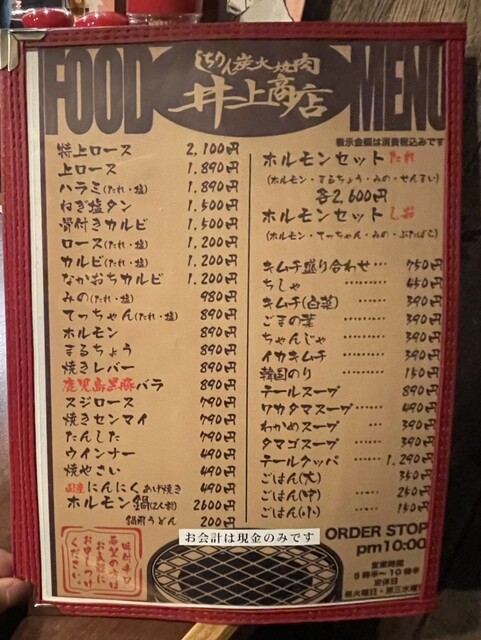 FOOD MENU
しちりん炭火焼肉
井上商店
表示金額は消費税込みです
特上ロース 2,100円
上ロース 1,890円
ハラミ(たれ・塩) 1,890円
ねぎ塩タン 1,500円
骨付きカルビ 1,500円
ロース(たれ・塩) 1,200円
カルビ(たれ・塩) 1,200円
なかおちカルビ 1,200円
みの(たれ・塩) 980円
てっちゃん(たれ・塩) 890円
ホルモン 890円
まるちょう 890円
焼きレバー 890円
鹿児島黒豚バラ 890円
スジロース 790円
焼きセンマイ 790円
たんした 790円
ウインナー 490円
焼やさい 490円
国産にんにくあげ焼き 490円
ホルモン鍋(2人前) 2600円
鍋用うどん 200円
ホルモンセット たれ
(ホルモン・まるちょう・みの・せんまい)
各2,600円
ホルモンセット しお
(ホルモン・てっちゃん・みの・ぶたばら)
キムチ盛り合わせ… 750円
ちしゃ ……… 450円
キムチ(白菜) …… 390円
ごまの葉 ……… 390円
ちゃんじゃ ……… 390円
イカキムチ ……… 390円
韓国のり ……… 150円
テールスープ 890円
ワカタマスープ…… 490円
わかめスープ … 390円
タマゴスープ …… 390円
テールクッパ …… 1,290円
ごはん(大) 350円
ごはん(中) …… 250円
ごはん(小) …… 150円
お会計は現金のみです
ORDER STOP
pm10:00
営業時間
5時半~10時半
定休日
毎火曜日・第三水曜